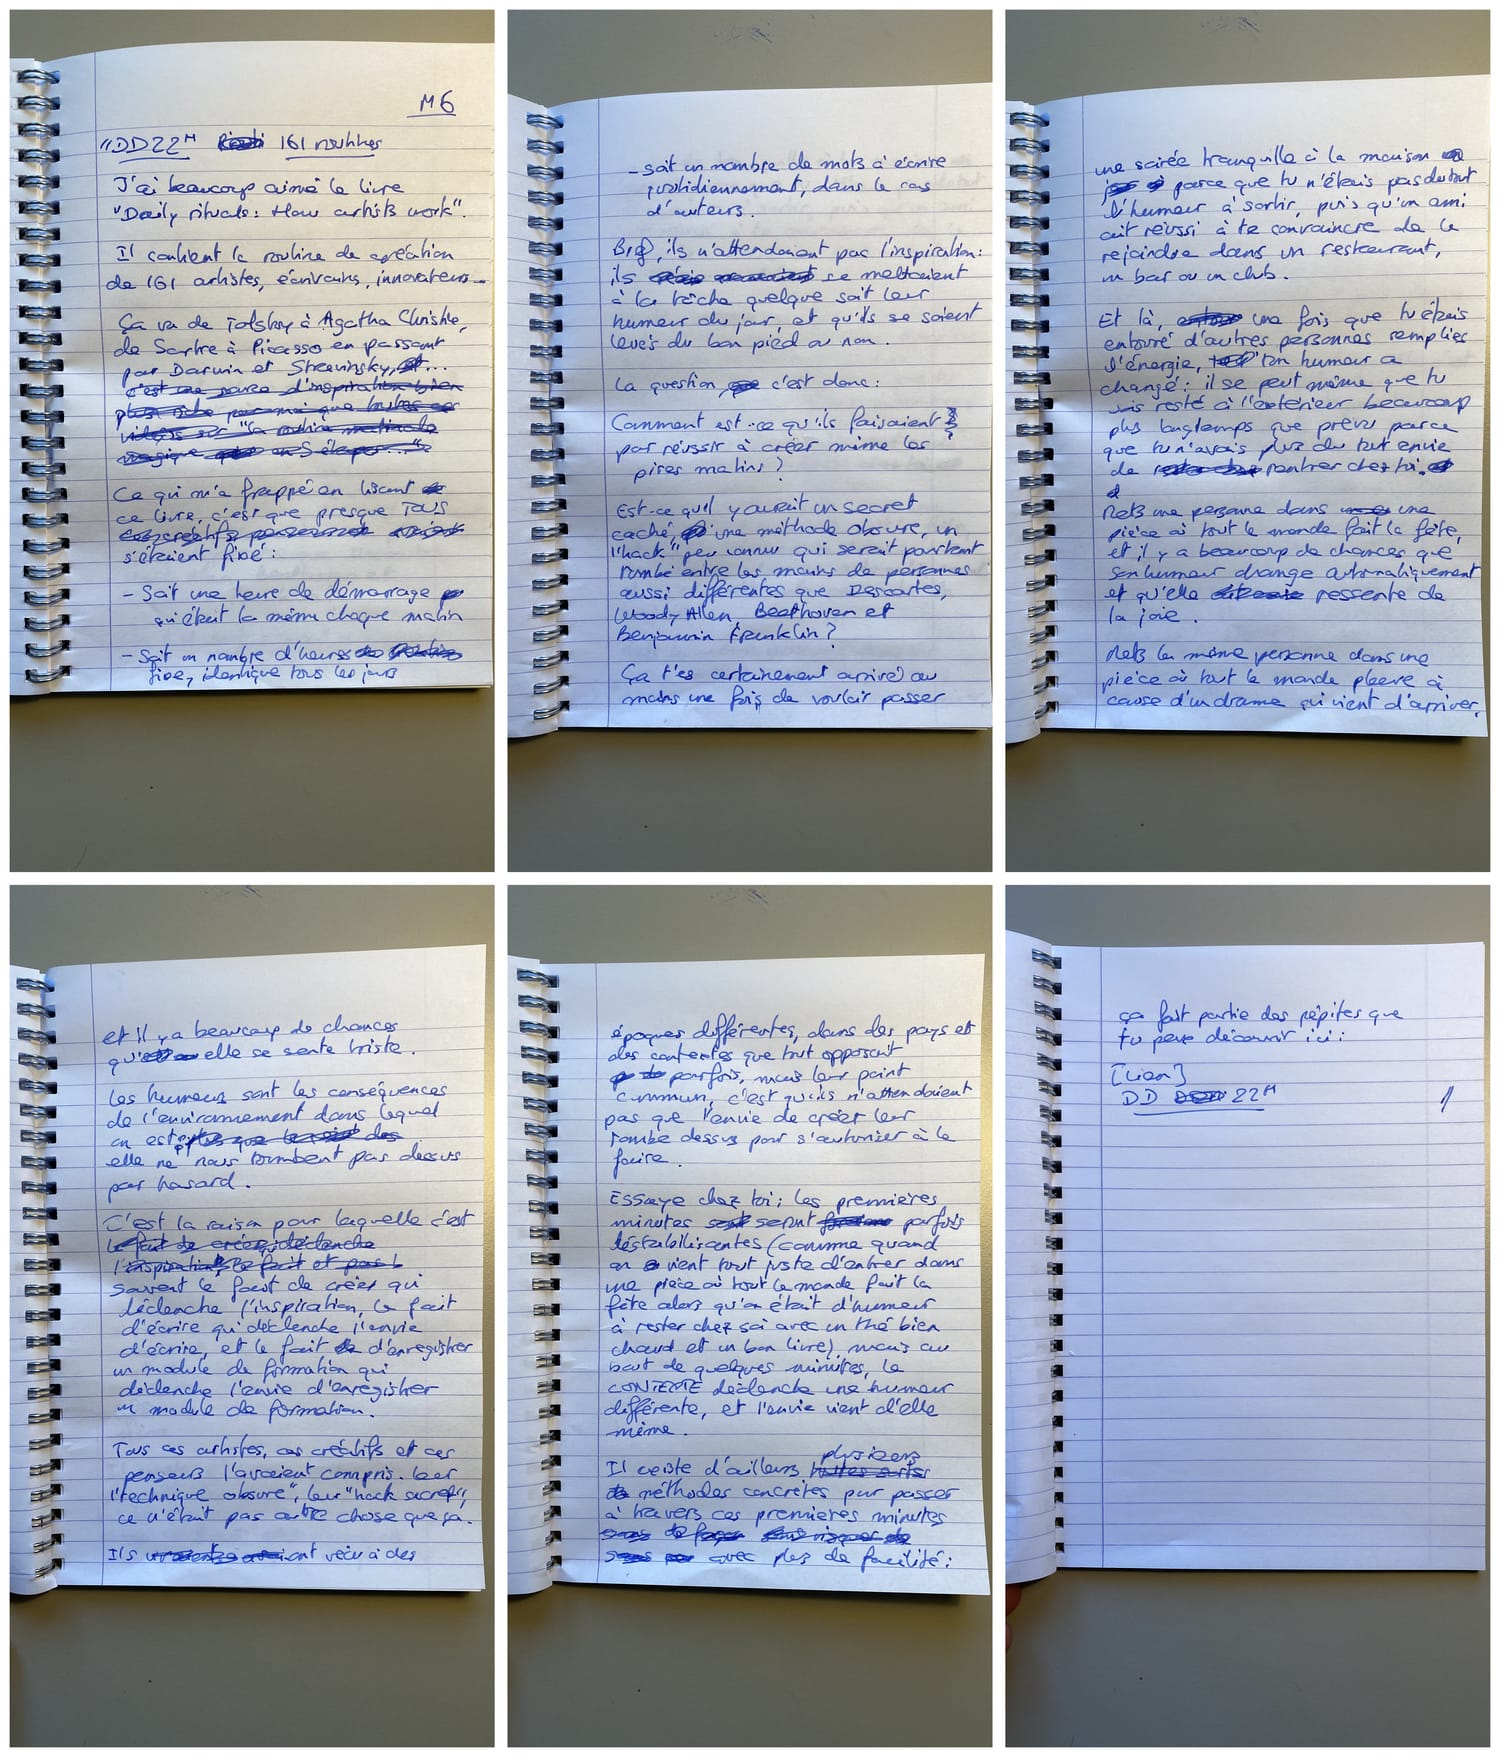 M6
"DD22M 161 routines
J'ai beaucoup aimé le livre
"Daily rituals: How artists work".
Il contient la routine de création
de 161 artistes, écrivains, innovateurs...
Ça va de Tolstoy à Agatha Christie,
de Sartre à Picasso en passant
par Darwin et Stravinsky, ...
c'est une source d'inspiration bien
plus riche pour moi que toutes ces
vidéos sur "la routine matinale
magique en 5 étapes..."
Ce qui m'a frappé en lisant
ce livre, c'est que presque TOUS
s'étaient fixé :
- Soit une heure de démarrage
qui était la même chaque matin
- Soit un nombre d'heures
fixe, identique tous les jours
- soit un nombre de mots à écrire
quotidiennement, dans le cas
d'auteurs.
Bref, ils n'attendaient pas l'inspiration:
ils se mettaient
à la tâche quelque soit leur
humeur du jour, et qu'ils se soient
levés du bon pied ou non.
La question, c'est donc :
Comment est-ce qu'ils faisaient
pour réussir à créer même les
pires matins ?
Est-ce qu'il y aurait un secret
caché, une méthode obscure, un
"hack" peu connu qui serait pourtant
tombé entre les mains de personnes
aussi différentes que Descartes,
Woody Allen, Beethoven et
Benjamin Franklin ?
Ça t'es certainement arrivé au
moins une fois de vouloir passer
une soirée tranquille à la maison
parce que tu n'étais pas du tout
d'humeur à sortir, puis qu'un ami
ait réussi à te convaincre de le
rejoindre dans un restaurant,
un bar ou un club.
Et là, une fois que tu étais
entouré d'autres personnes remplies
d'énergie, ton humeur a
changé : il se peut même que tu
sois resté à l'extérieur beaucoup
plus longtemps que prévu parce
que tu n'avais plus du tout envie
de rentrer chez toi.
Mets une personne dans une
pièce où tout le monde fait la fête,
et il y a beaucoup de chances que
son humeur change automatiquement
et qu'elle ressente de
la joie.
Mets la même personne dans une
pièce où tout le monde pleure à
cause d'un drame qui vient d'arriver,
et il y a beaucoup de chances
qu'elle se sente triste.
Les humeurs sont les conséquences
de l'environnement dans lequel
on est,
elle ne nous tombent pas dessus
par hasard.
C'est la raison pour laquelle c'est
le fait de créer qui déclenche
l'inspiration, le fait et pas l
souvent le fait de créer qui
déclenche l'inspiration, le fait
d'écrire qui déclenche l'envie
d'écrire, et le fait d'enregistrer
un module de formation qui
déclenche l'envie d'enregistrer
un module de formation.
Tous ces artistes, ces créatifs et ces
penseurs l'avaient compris. Leur
"technique obscure", leur "hack secret",
ce n'était pas autre chose que ça.
Ils ont vécu à des
époques différentes, dans des pays et
des contextes que tout opposait
parfois, mais leur point
commun, c'est qu'ils n'attendaient
pas que l'envie de créer leur
tombe dessus pour s'autoriser à le
faire.
Essaye chez toi : les premières
minutes seront parfois
déstabilisantes (comme quand
on vient tout juste d'entrer dans
une pièce où tout le monde fait la
fête alors qu'on était d'humeur
à rester chez soi avec un thé bien
chaud et un bon livre), mais au
bout de quelques minutes, le
CONTEXTE déclenche une humeur
différente, et l'envie vient d'elle
même.
Il existe d'ailleurs plusieurs
méthodes concrètes pour passer
à travers ces premières minutes
avec plus de facilité :
ça fait partie des pépites que
tu peux découvrir ici :
[Lien]
DD 22M